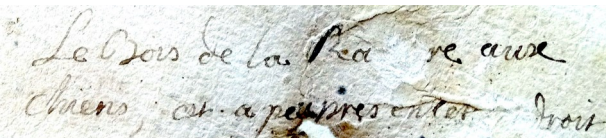 Le Bois de la Rea re aux
chiens, est a peu pres en cet droit